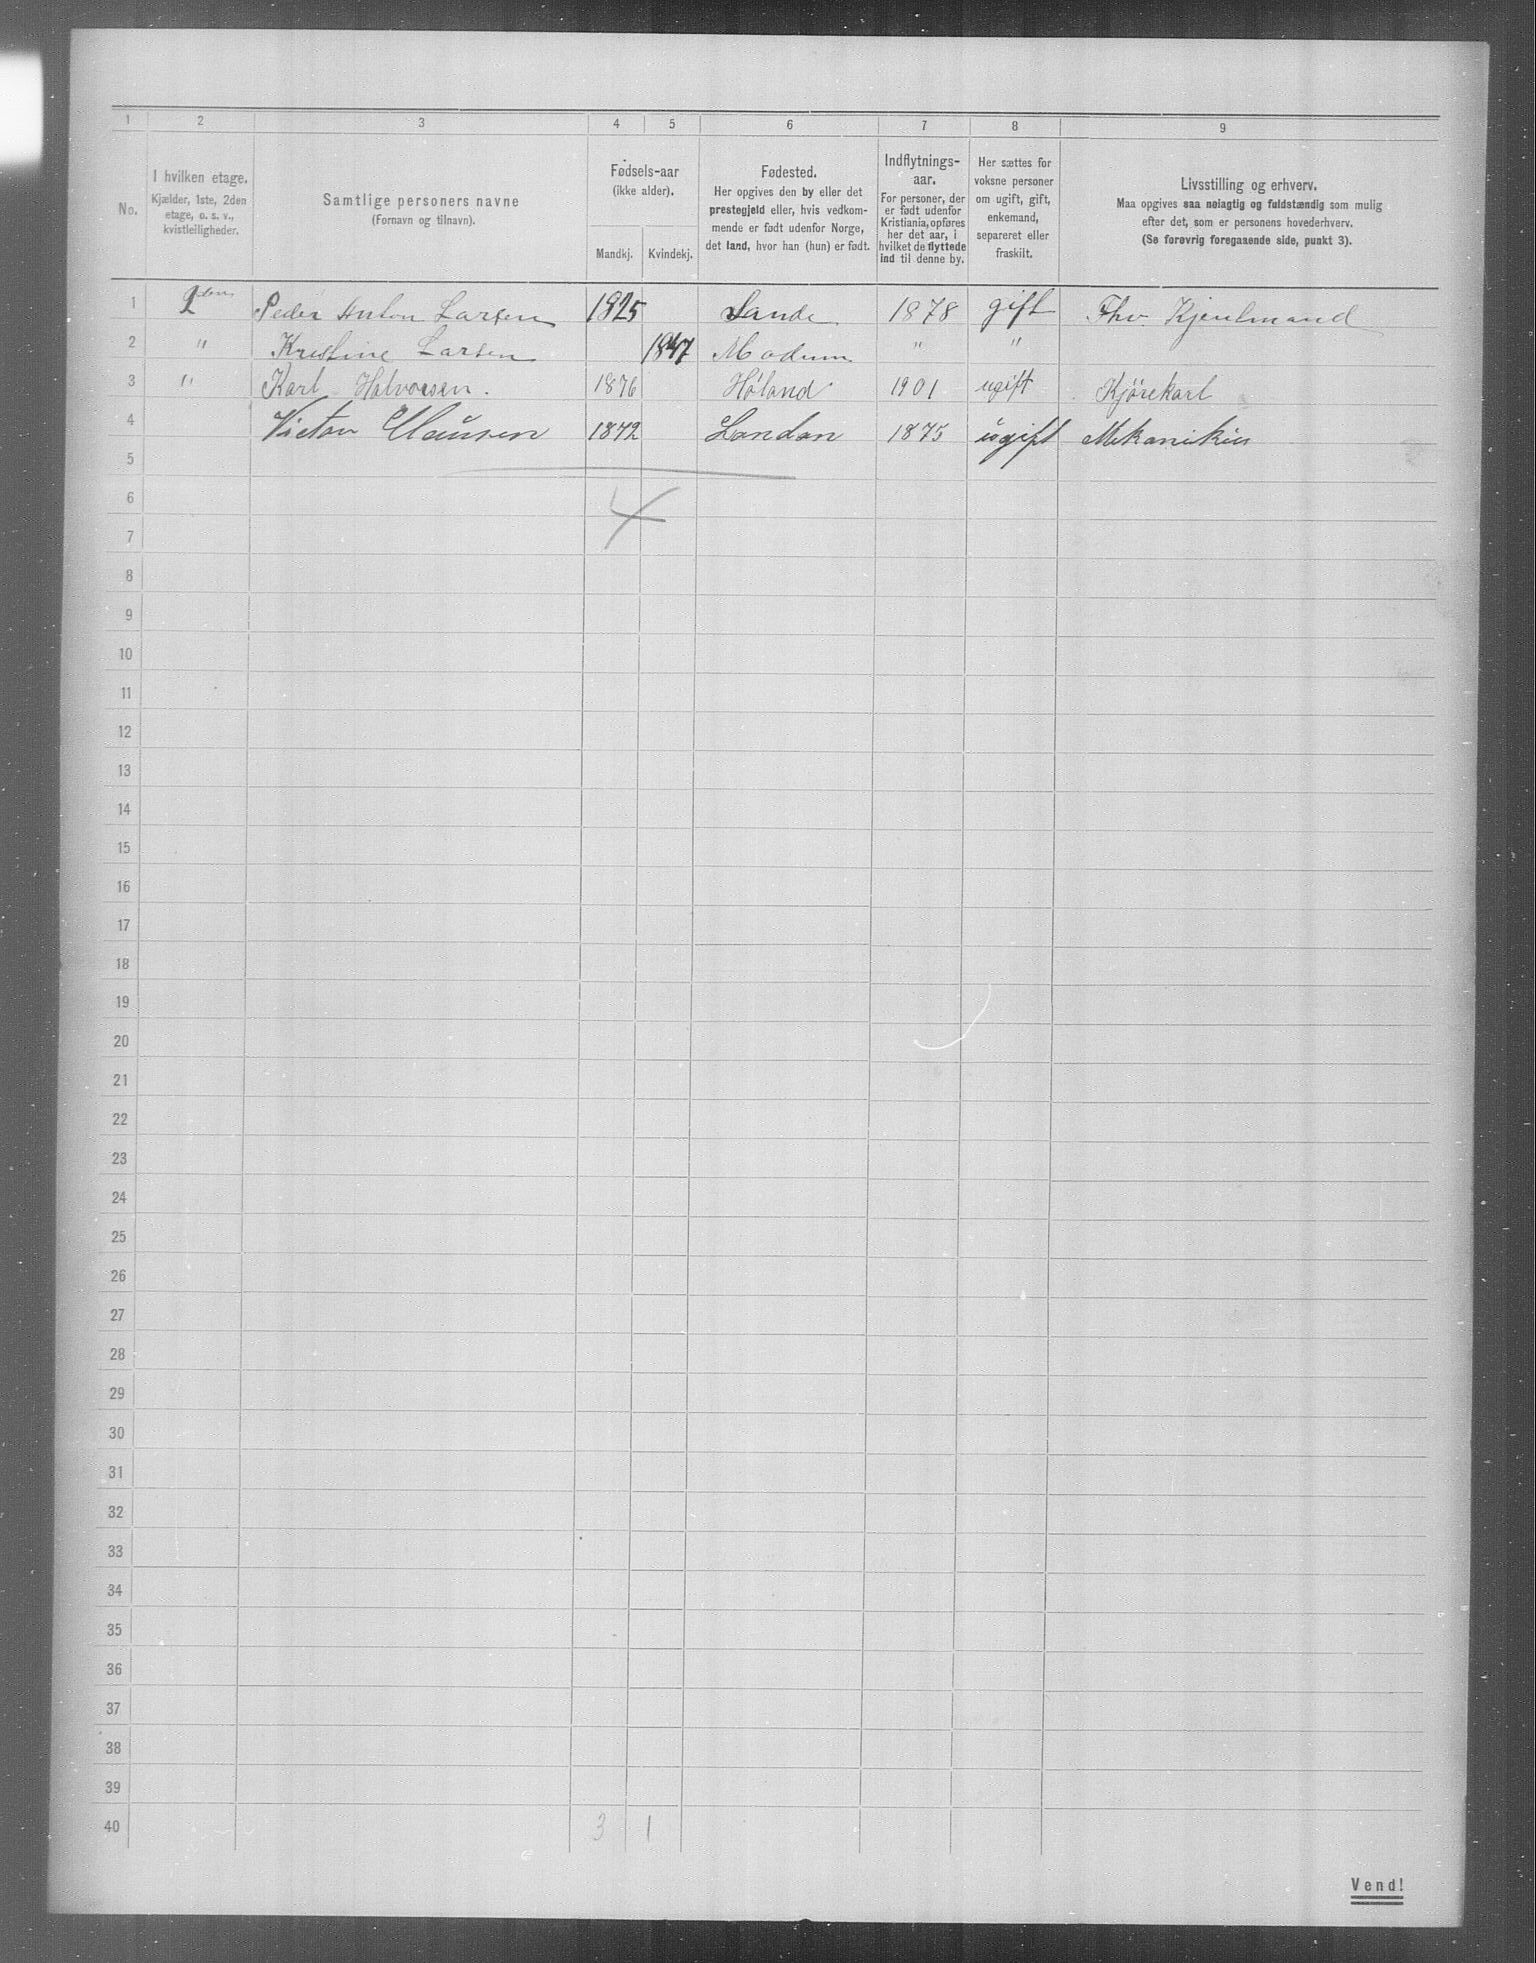 1 2 3 4 5 6 7 8 9
No.
I hvilken etage.
Kjælder, 1ste, 2den
etage, o. s. v.,
kvistleiligheder.
Samtlige personers navne
(Fornavn og tilnavn).
Fødsels-aar
(ikke alder).
Mandkj. Kvindekj.
Fødested.
Her opgives den by eller det
prestegjeld eller, hvis vedkom-
mende er født udenfor Norge,
det land, hvor han (hun) er født.
Indflytnings-
aar.
For personer, der
er født udenfor
Kristiania, opføres
her det aar, i
hvilket de flyttede
ind til denne by.
Her sættes for
voksne personer
om ugift, gift,
enkemand,
separeret eller
fraskilt.
Livsstilling og erhverv.
Maa opgives saa nøiagtig og fuldstændig som mulig
efter det, som er personens hovederhverv.
(Se forøvrig foregaaende side, punkt 3).
1 2den Peder Anton Larsen 1825 Sande 1878 gift Fhv. Kjørelmand
2 " Kristine Larsen 1847 Modum " "
3 " Karl Halvorsen. 1876 Høland 1901 ugift Kjörekarl
4 Victor Clausen 1872 Landan 1875 ugift Mekanikus
5
6
7
8
9
10
11
12
13
14
15
16
17
18
19
20
21
22
23
24
25
26
27
28
29
30
31
32
33
34
35
36
37
38
39
40 3 1
Vend!